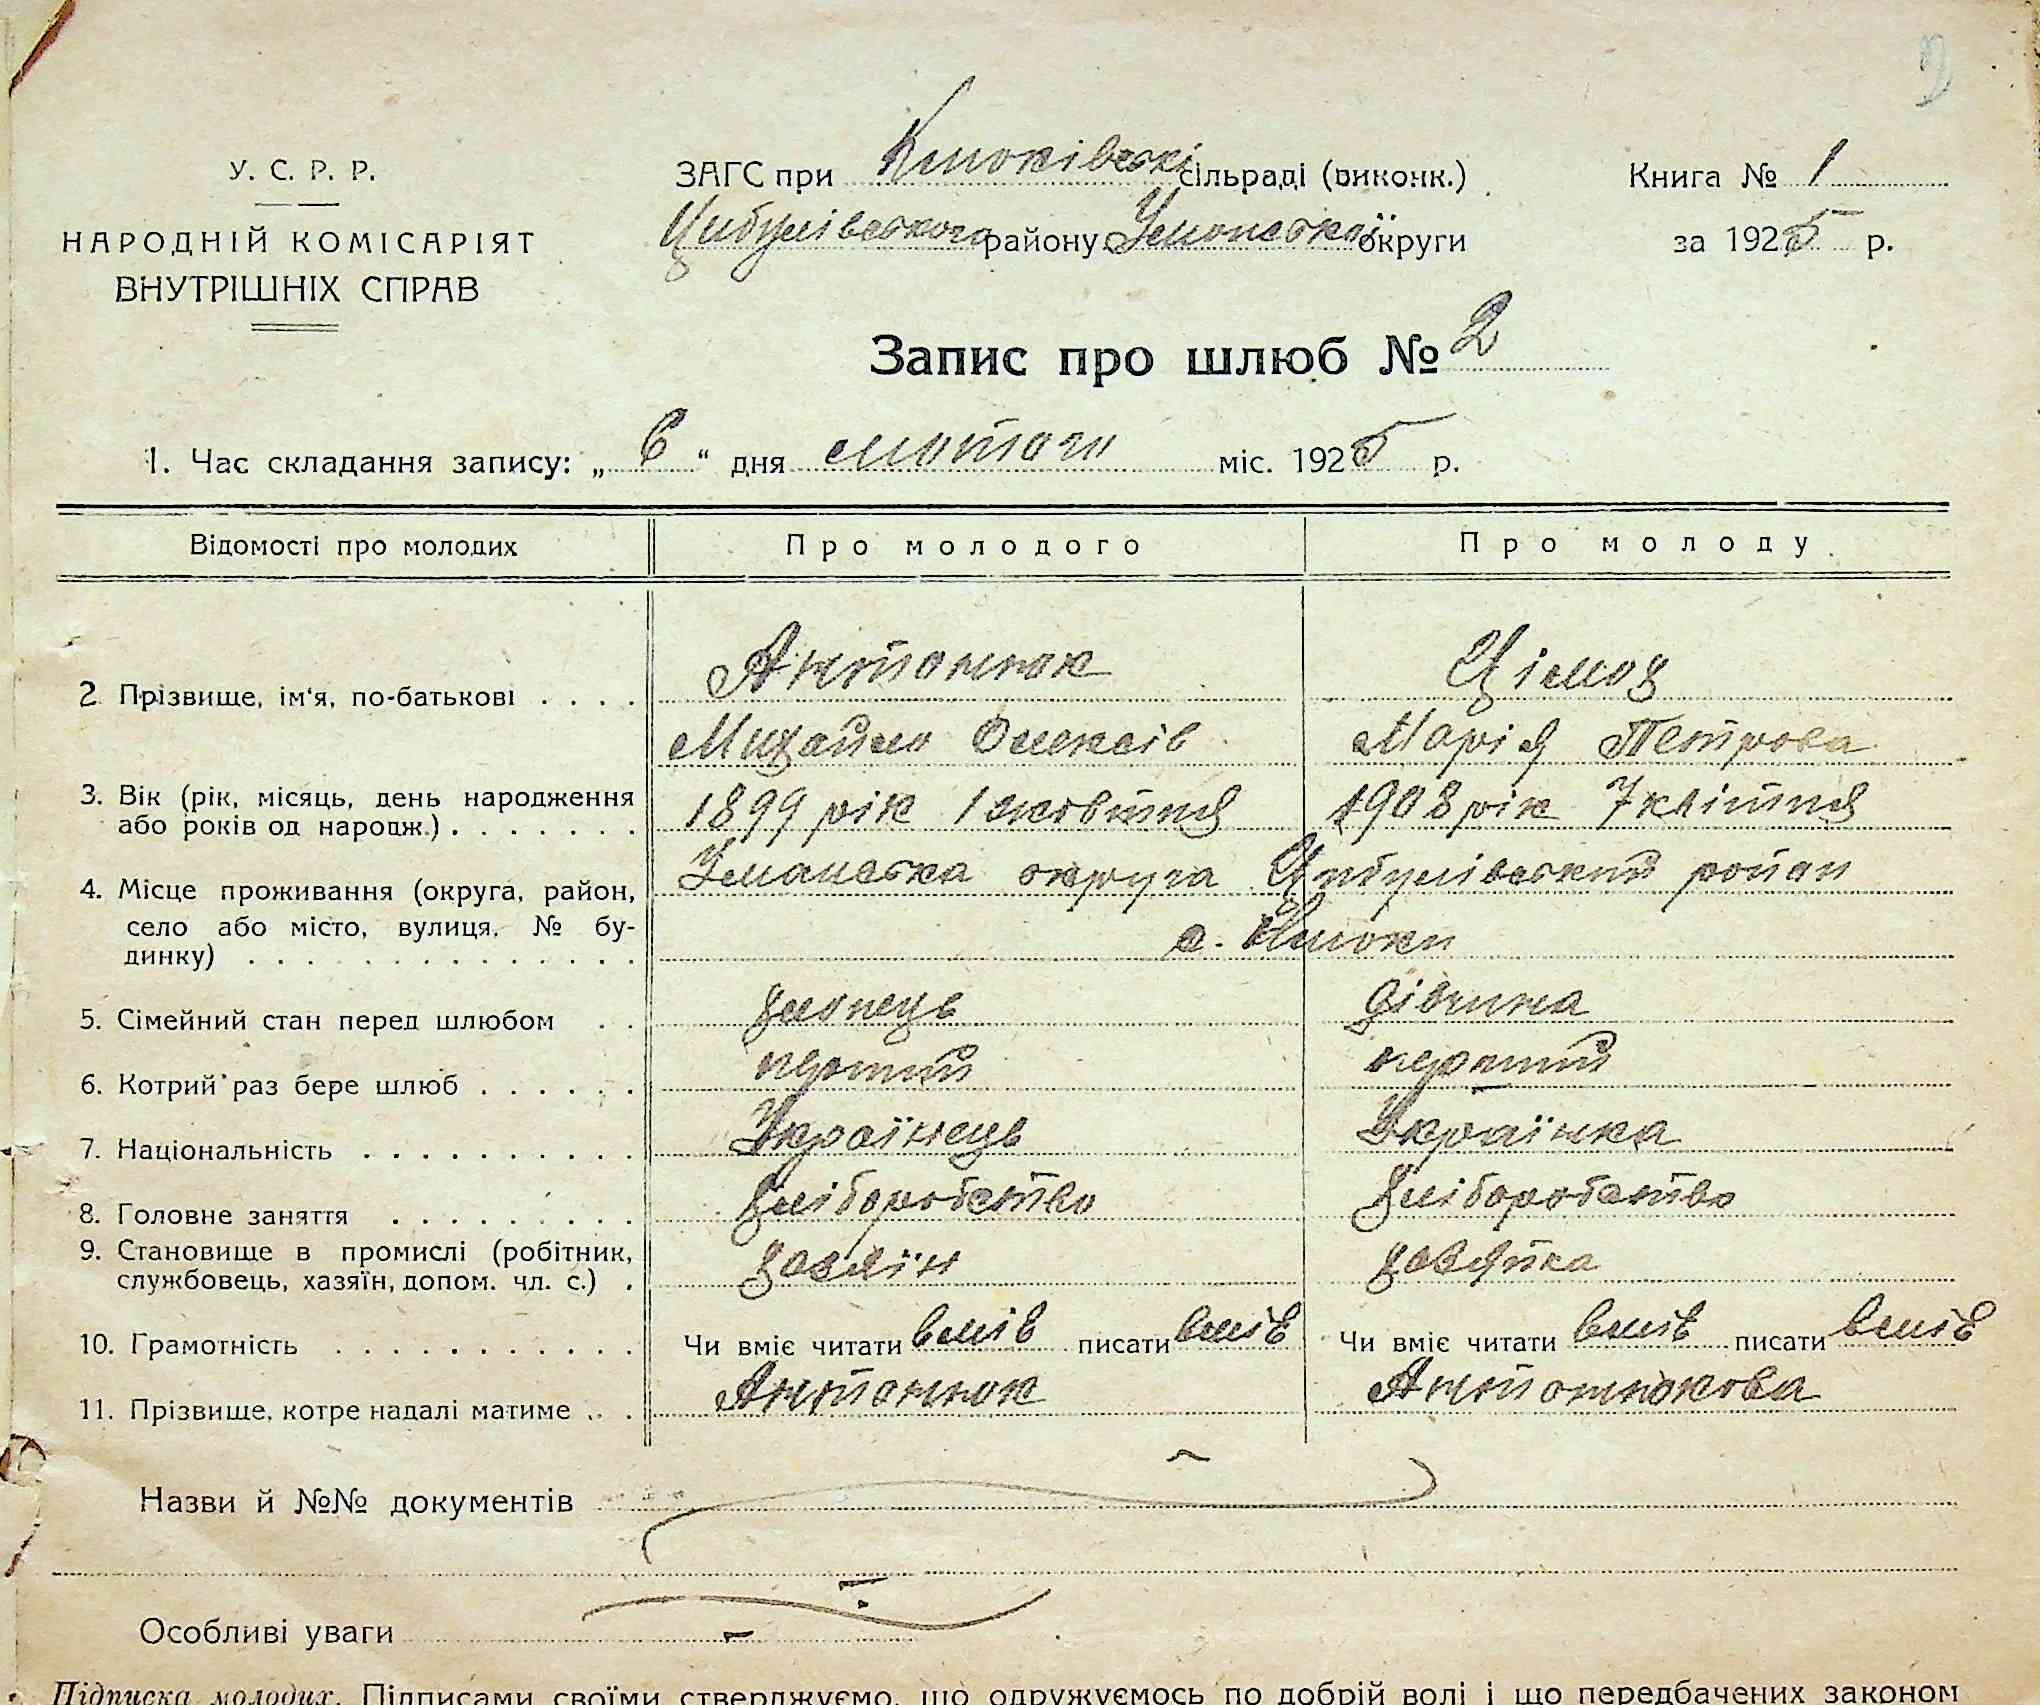 У. С. Р. Р.
НАРОДНІЙ КОМІСАРІЯТ
ВНУТРІШНІХ СПРАВ
ЗАГС при Клюківські сільраді (виконк.)
Цибулівського району Уманської округи
Книга № 1
за 1925 р.
Запис про шлюб № 2
1. Час складання запису: „ 6 “ дня лютого міс. 1925 р.
Відомості про молодих Про молодого Про молоду
Антонюк
2 Прізвище, ім'я, по-батькові . . . .
Михайло Олексів Марія Петрова
3. Вік (рік, місяць, день народження 1899 рік 1 жовтня 1908 рік 7 квітня
або років од народж.) . . . . . . .
Уманська округа Цибулівський район
4. Місце проживання (округа, район,
село або місто, вулиця, № бу-
динку) . . . . . . . . . . . . . с. Клюки
5. Сімейний стан перед шлюбом . . хлопець дівчина
6. Котрий раз бере шлюб . . . . . . перший перший
7. Національність . . . . . . . . . . Українець Українка
8. Головне заняття . . . . . . . . . хліборобство хліборобство
9. Становище в промислі (робітник, хазяїн хазяйка
службовець, хазяїн, допом. чл. с.) .
10. Грамотність . . . . . . . . . . . Чи вміє читати вмів писати вмів Чи вміє читати вмів писати вмів
11. Прізвище, котре надалі матиме . . . Антонюк Антонюкова
Назви й №№ документів
Особливі уваги
Підписка молодих. Підписами своїми стверджуємо, що одружуємось по добрій волі і що передбачених законом